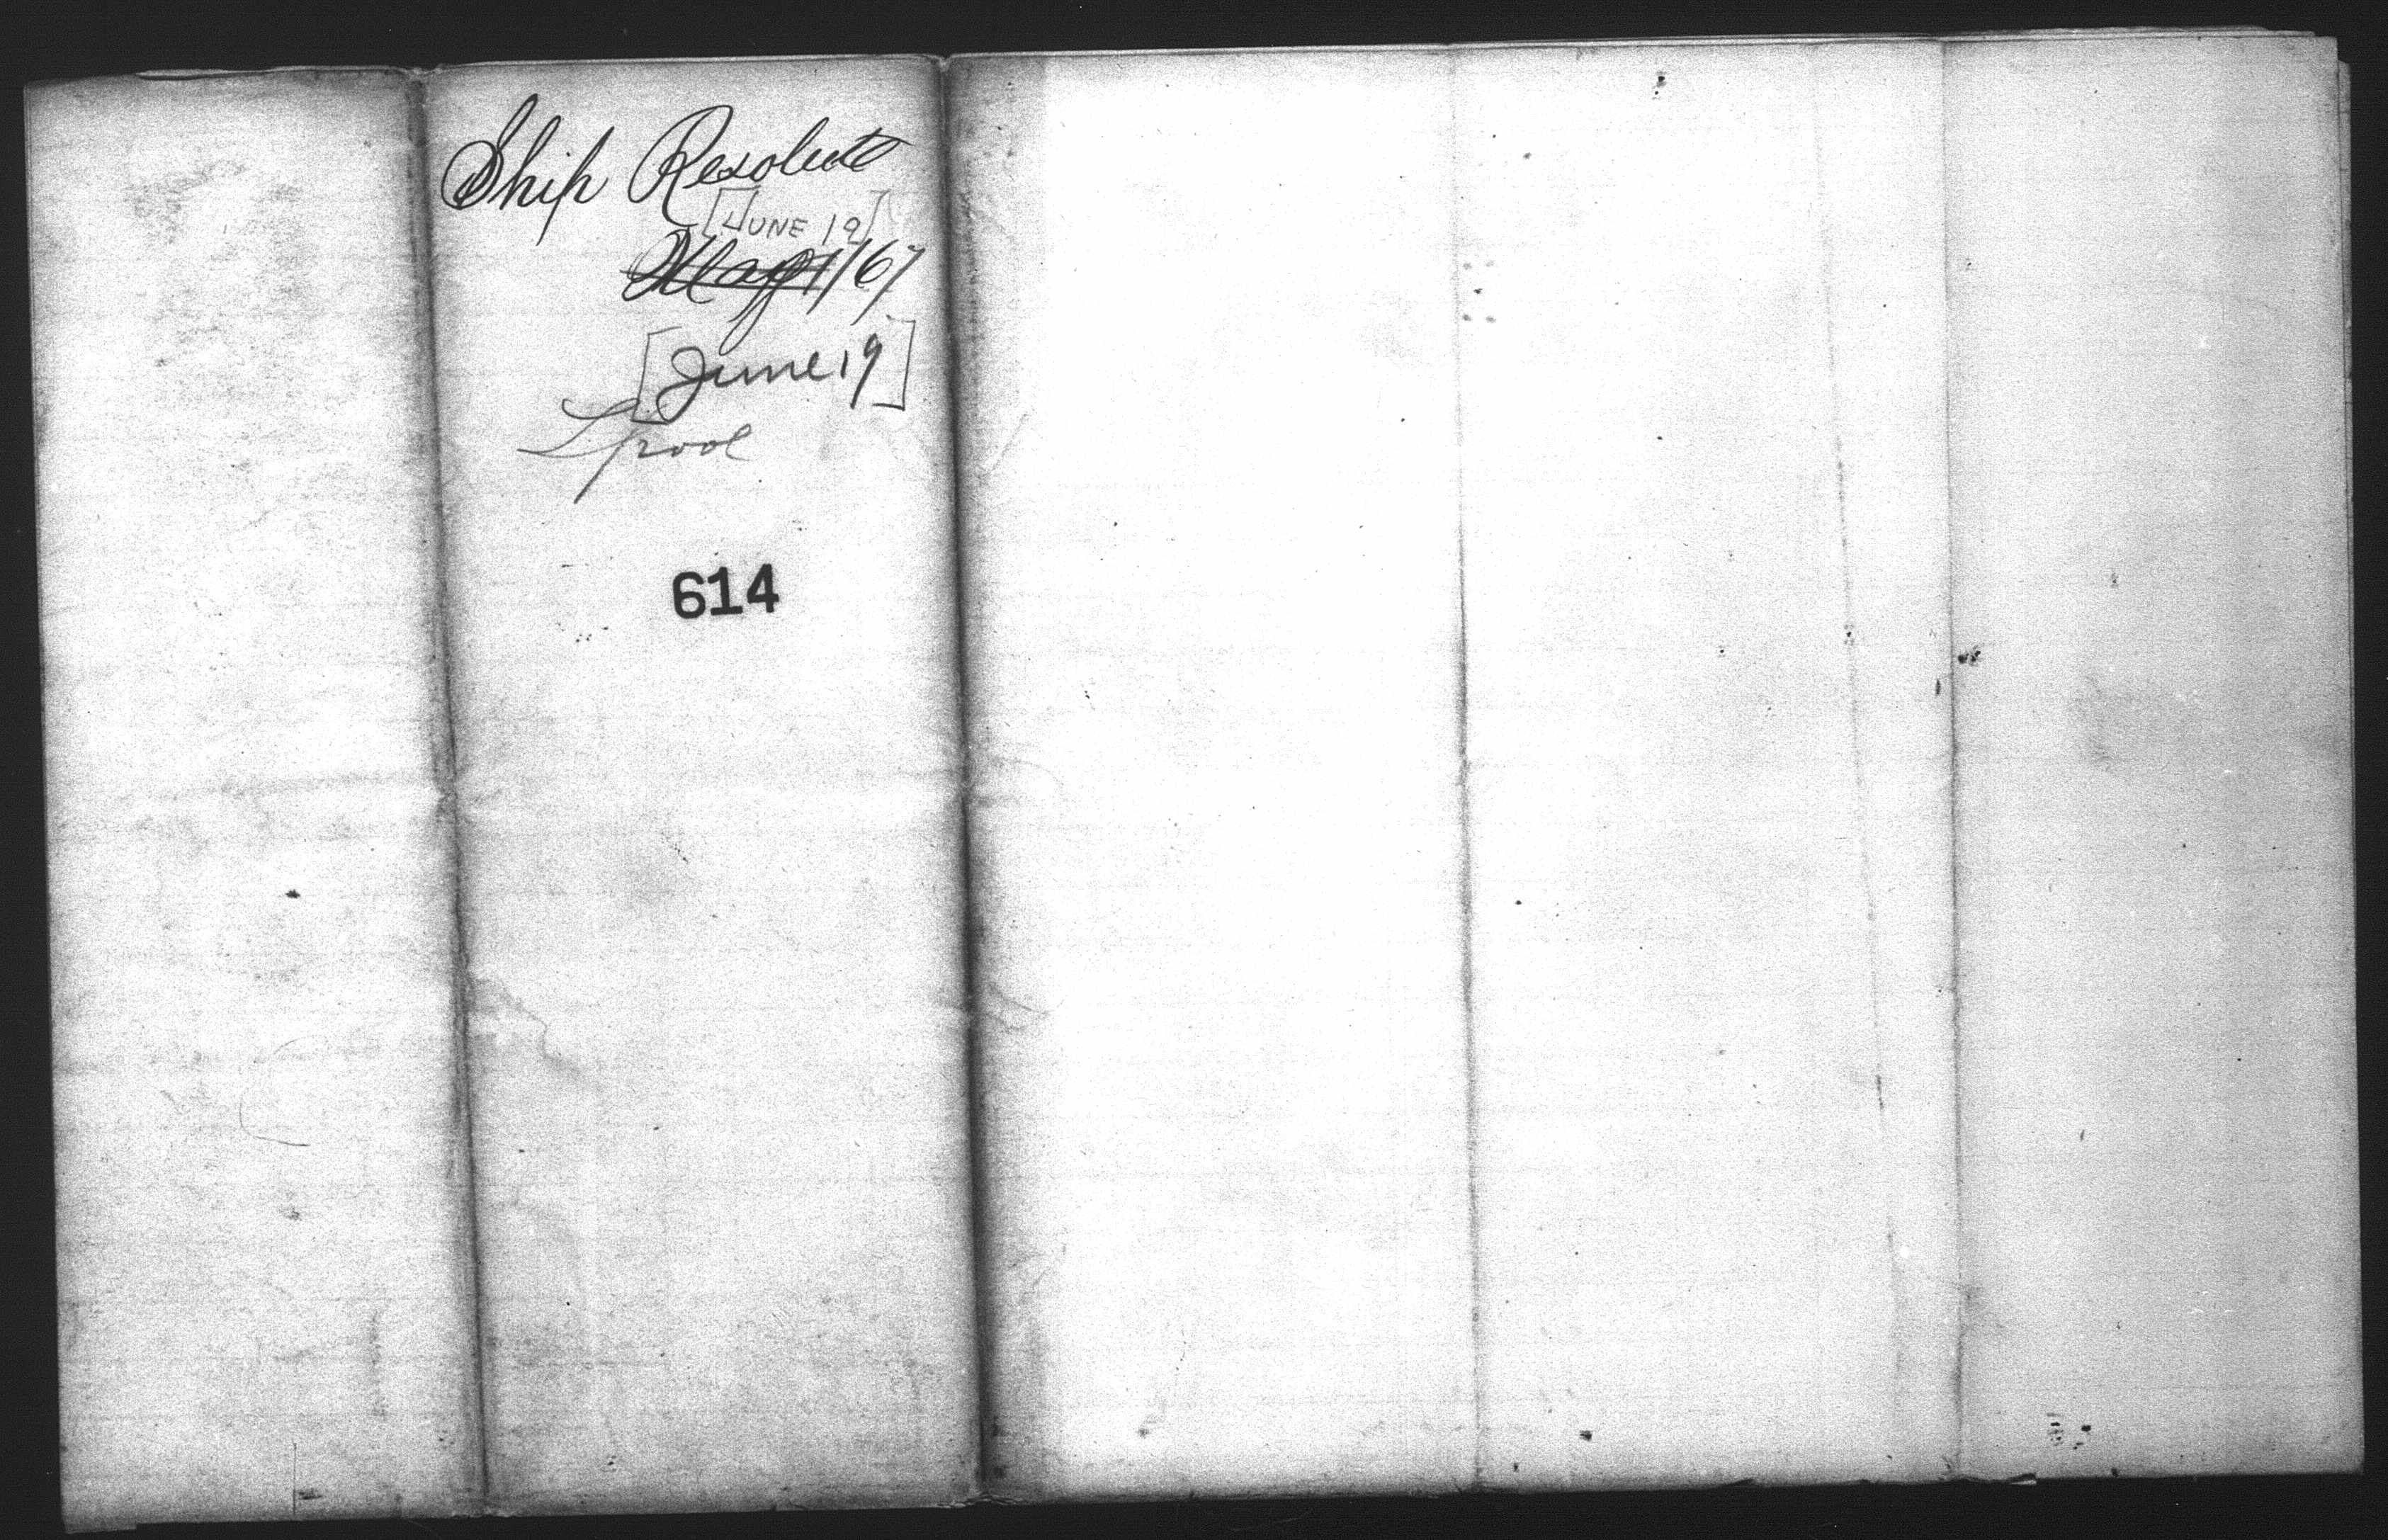 Ship Resolute
[JUNE 19]
May 1/67
[June 19]
Lpool
614